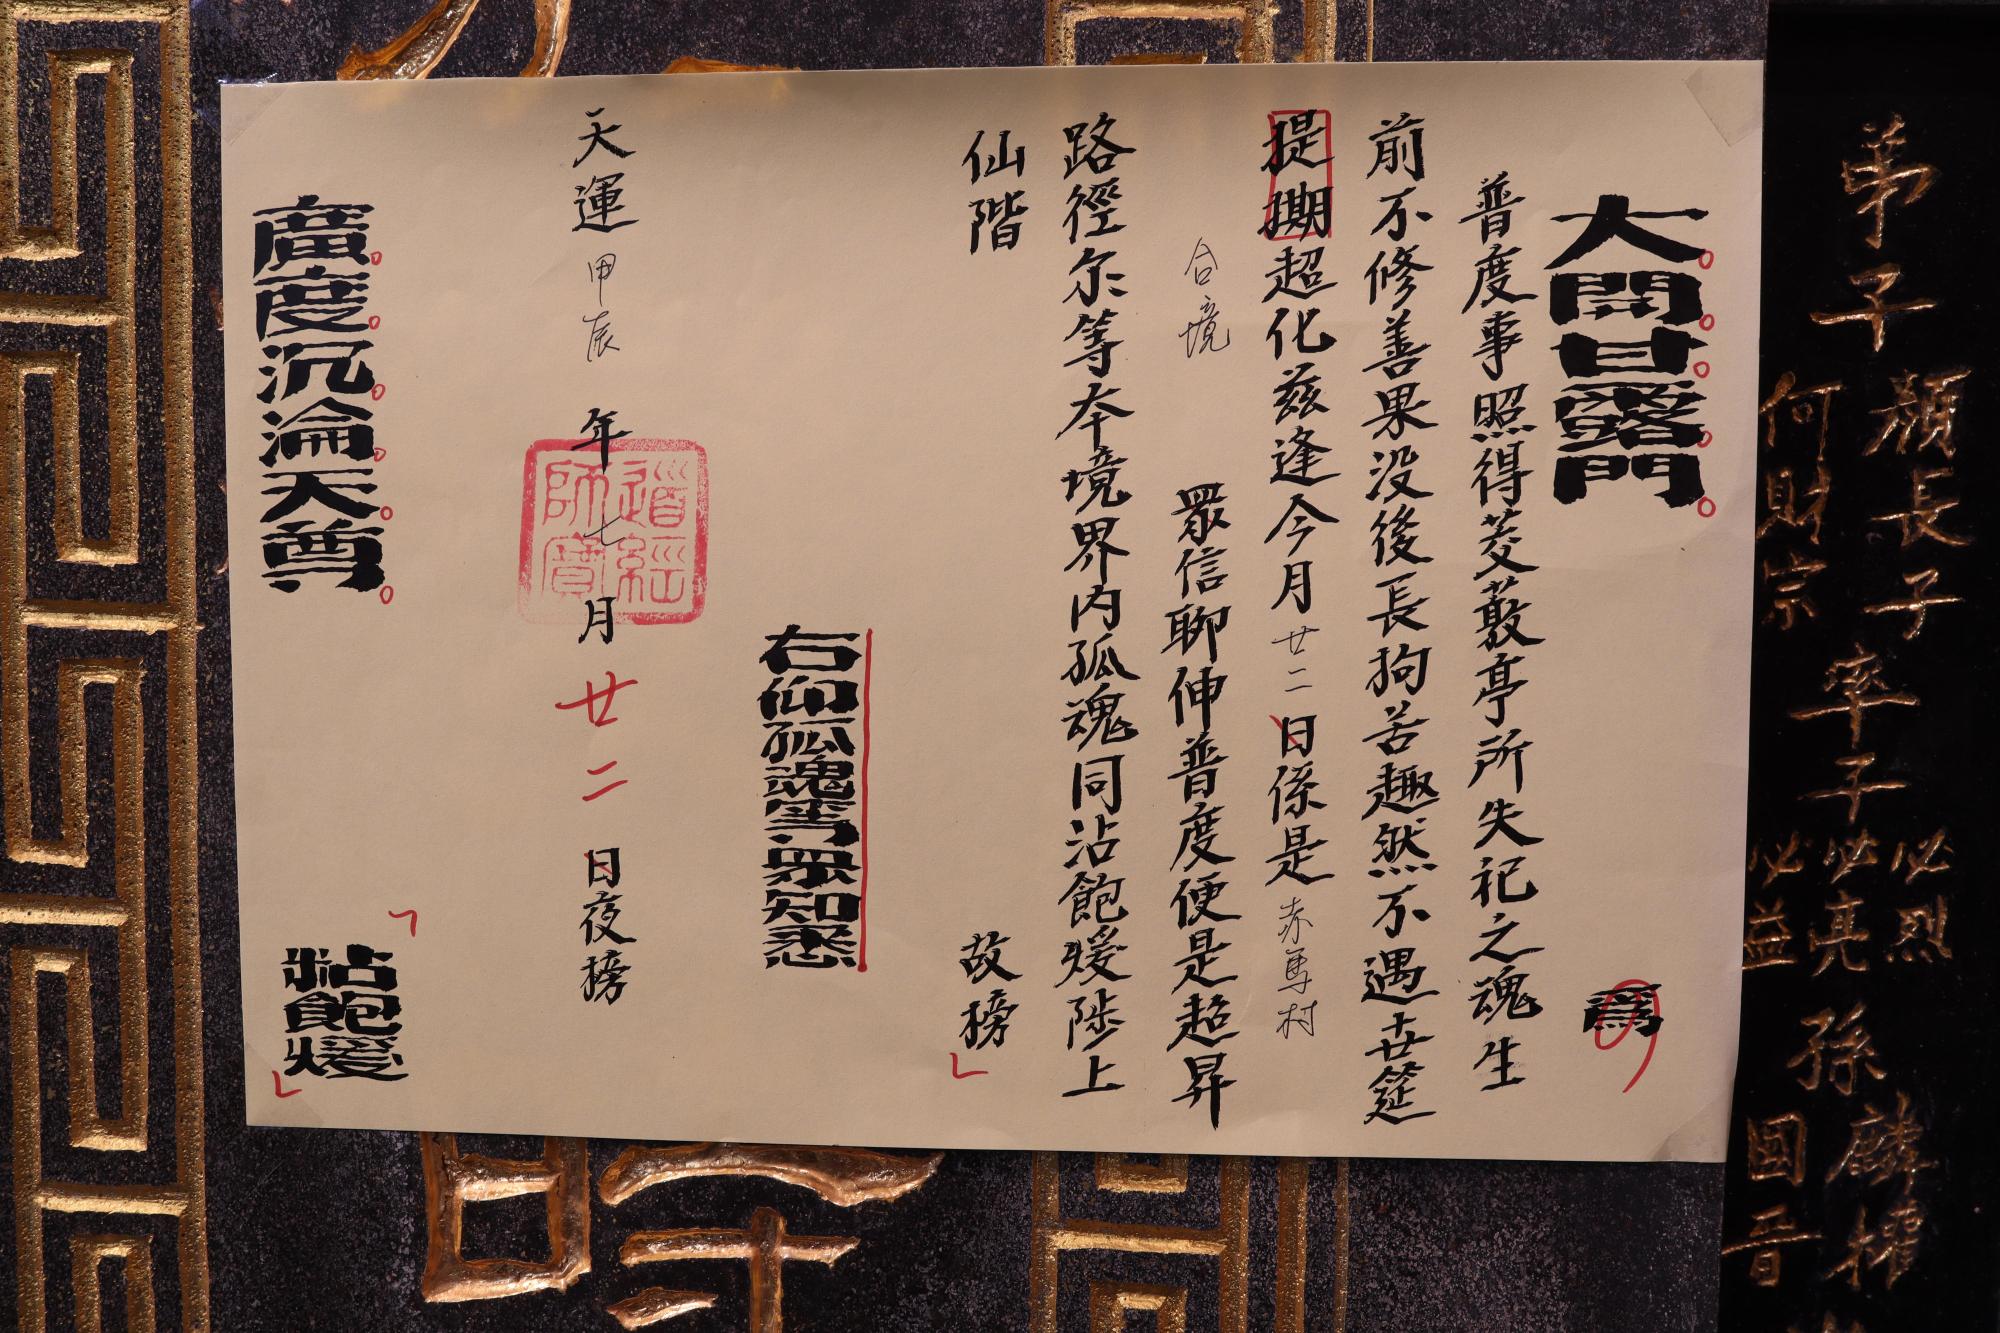 弟子
顏長子
何財宗
率子
必烈
必亮
必益
孫
麟權
國晋
大開甘露門 為
普度事照得菱藪亭所失祀之魂生
前不修善果没後長拘苦趣然不遇廿筵
提撕超化茲逢今月廿二日係是赤馬村
合境 眾信聊伸普度便是超昇
路徑尔等本境界内孤魂同沾飽煖陟上
仙階 故榜
右仰孤魂等眾知悉
天運甲辰年七月廿二日夜榜
道經師寶
廣度沉淪天尊 粘飽煖